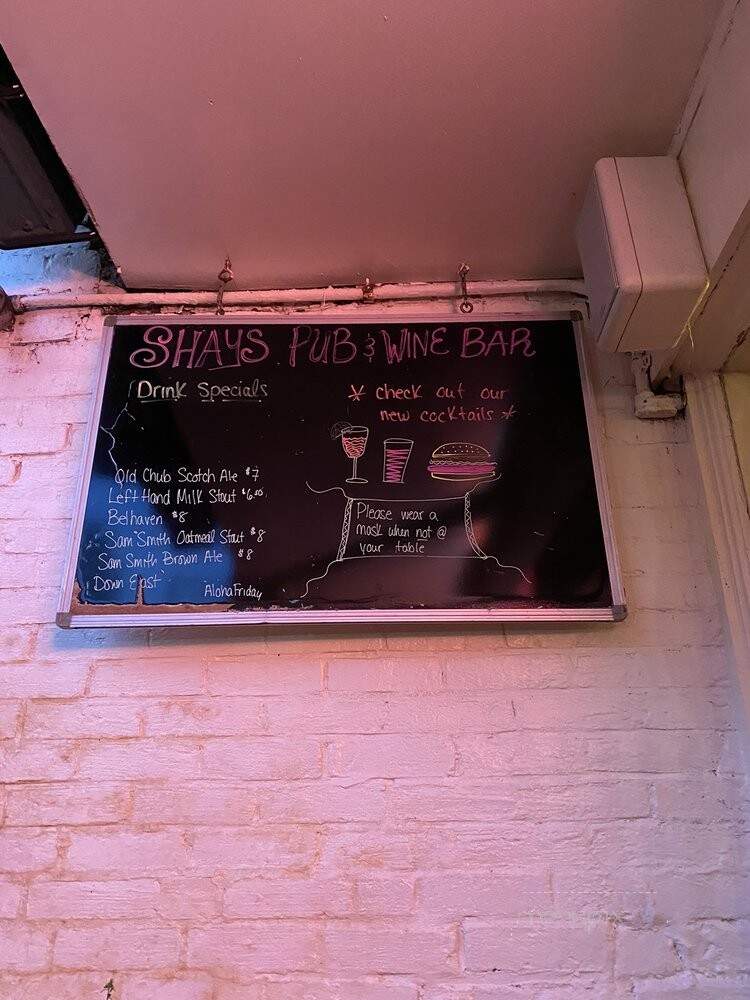 SHAYS PUB & WINE BAR
Drink Specials
* check out our
new cocktails *
Old Chub Scotch Ale $7
Left Hand Milk Stout $6.00
Belhaven $8
Sam Smith Oatmeal Stout $8
Sam Smith Brown Ale $8
Down East
AlohaFriday
Please wear a
mask when not @
your table